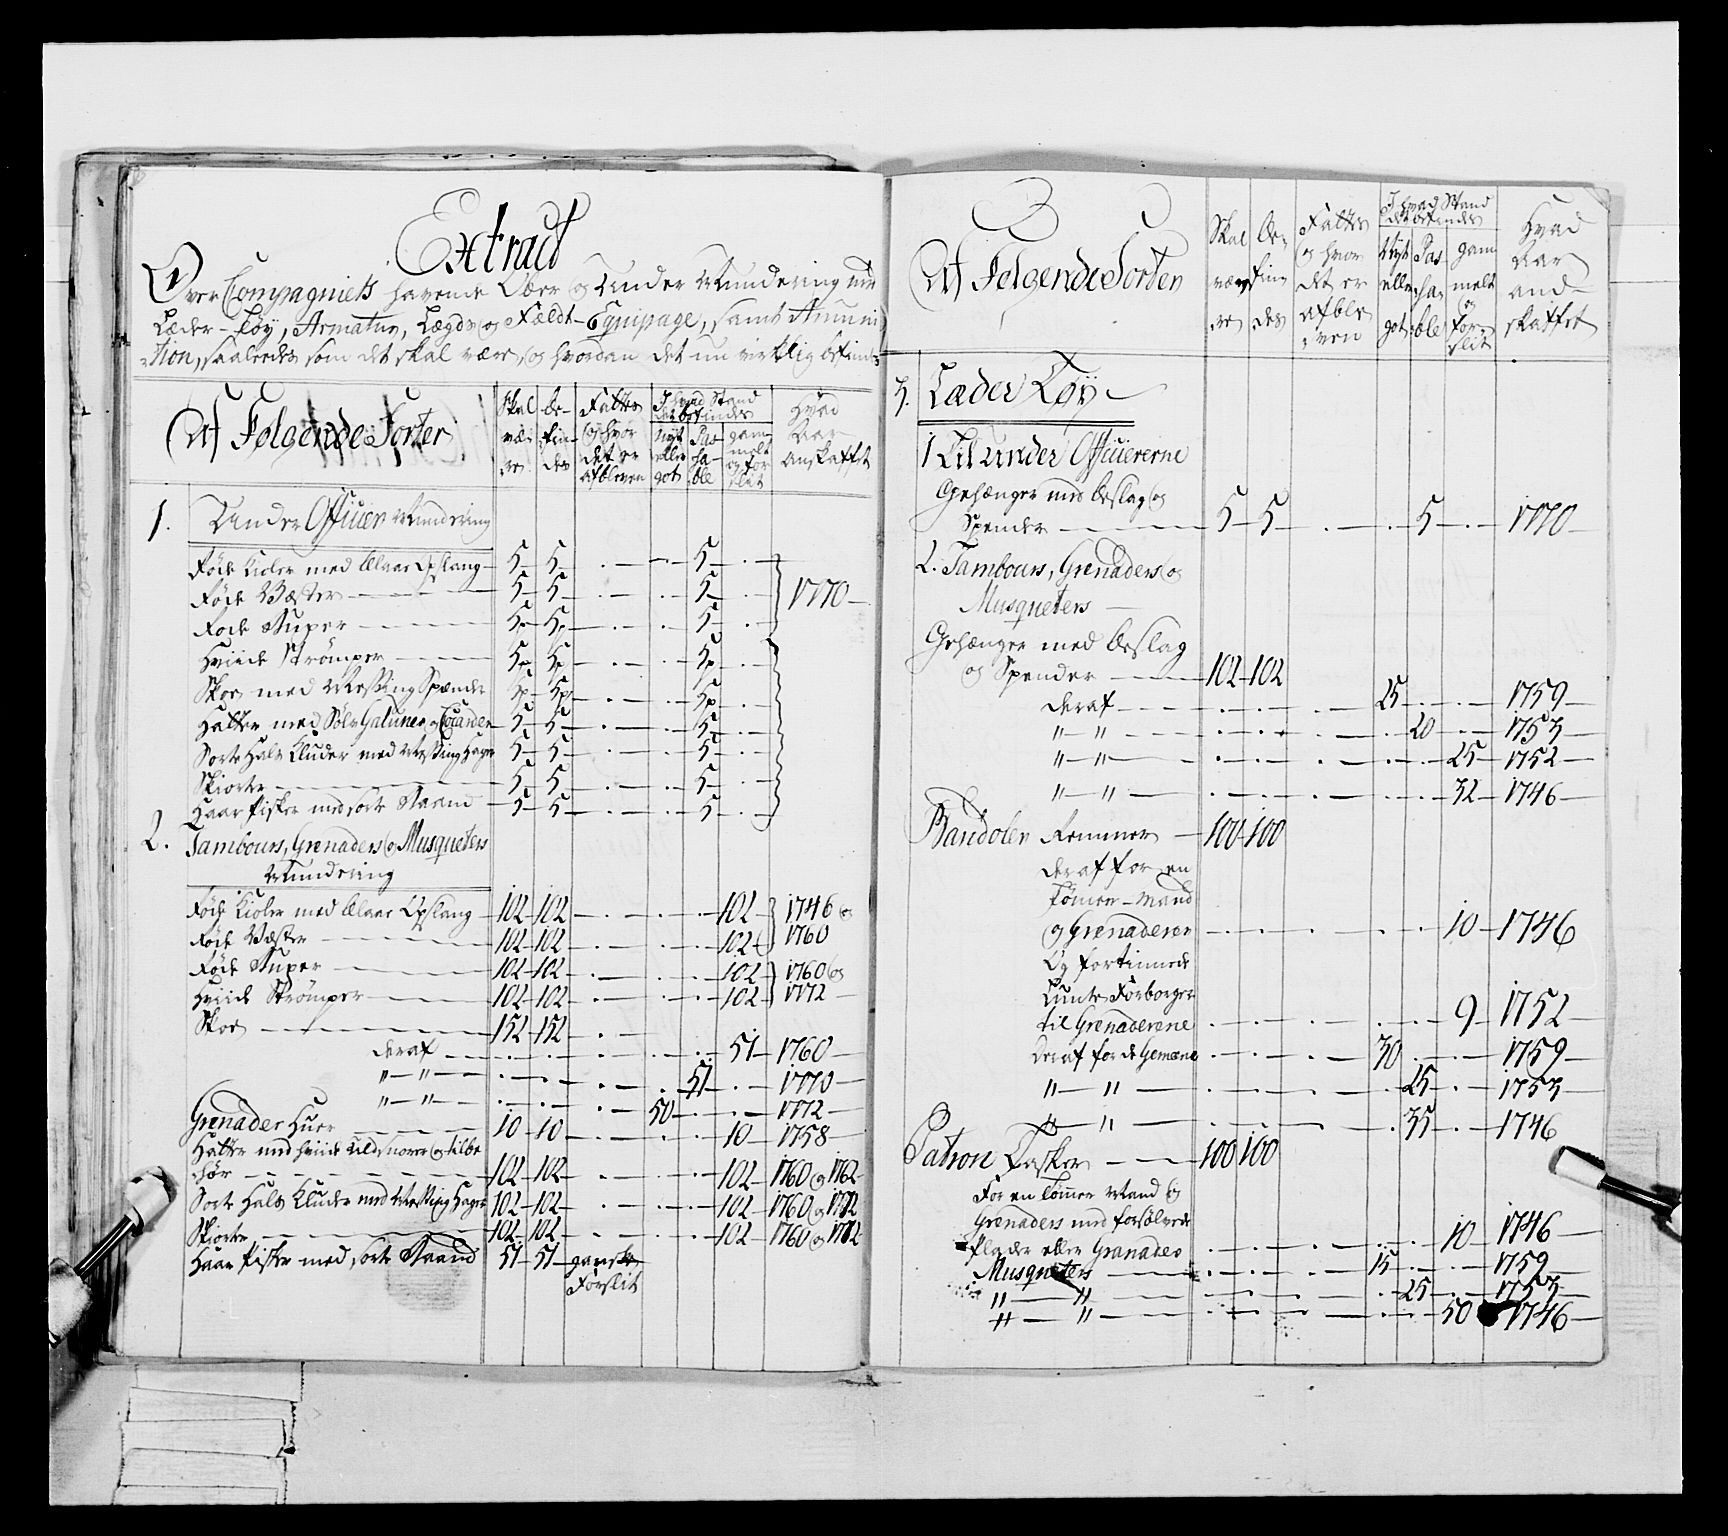 Extract
Over Compagniets havende Over og Under Mundering med
Læder-Tøy, Armatur, Lægds og Feldt-Equipage, samt Amuni
tion, saaledes som det skal være, og hvordan det nu virklig befindes
Af Følgende Sorter | Skal være | Befindes | Fattes og hvor det er afbleven | I hvad Stand det befindes | Nyt eller got | Passable | gammelt og forslit | Hvad Aar anskaffet
1. Under Officier Mundering
Røde Kioler med blaae Opslang 5 5 5
Røde Wæster 5 5 5 1770
Røde Buxer 5 5 5
Hviide Strømper 5 p 5 p 5 p
Skoe med Messing Spænder 5 p 5 p 5 p
Hatter med Sølv Galuner og Cocarder 5 5 5
Sorte Hals Kluder med Messing Hager 5 5 5
Skiorter 5 5 5
Haar Pisker med sort Baand 5 5 5
2. Tambours, Grenaders og Musqueters
Mundering
Røde Kioler med blaae Opslang 102 102 102 1746 og
Røde Wæster 102 102 102 1760
Røde Buxer 102 102 102 1760 og
Hviide Strømper 102 102 102 1772
Skoe 152 152
deraf 51 1760
" " 51 1770
" " 50 1772
Grenader Huer 10 10 10 1758
Hatter med hviide Uldsnorer og tilbe
hør 102 102 102 1760 og 1762
Sorte Hals Kluder med Messing Hager 102 102 102 1760 og 1772
Skiorter 102 102 102 1760 og 1772
Haar Pisker med sort Baand 51 51 ganske
Forslit
Af Følgende Sorter | Skal være | Befindes | Fattes og hvor det er afbleven | I hvad Stand det befindes | Nyt eller got | Passable | gammelt og forslit | Hvad Aar anskaffet
3. Læder Tøy
1 Til under Officiererne
Gehænger med beslag og
Spender 5 5 5 1770
2. Tambours, Grenaders og
Musqueters
Gehænger med beslag
og Spender 102 102
deraf 25 1759
" " 20 1753
" " 25 1752
" " 32 1746
Bandoler Remmer 100 100
deraf for en
Tømer-Mand
og Grenaderer 10 1746
Og fortinnede
Lunte Forborger
til Grenaderene 9 1752
deraf for de Gemene 30 1759
" " 25 1753
" " 35 1746
Patron Tasker 100 100
For en Tømer Mand og
Grenaders med forsølvede
Plader eller Granader 10 1746
Musqueters 15 1759
" " 25 1753
" " 50 1746